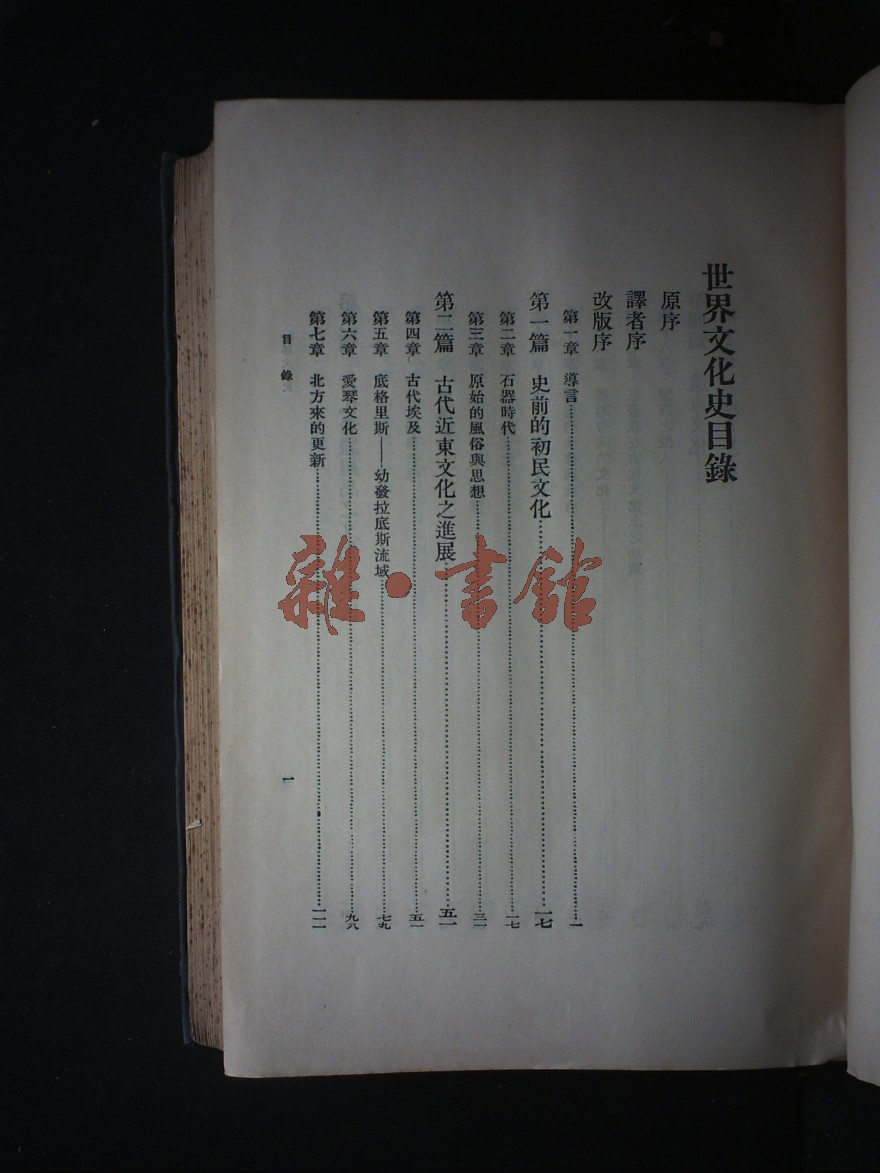 世界文化史目錄
原序
譯者序
改版序
第一章 導言……一
第一篇 史前的初民文化……一七
第二章 石器時代……一七
第三章 原始的風俗與思想……三一
第二篇 古代近東文化之進展……五一
第四章 古代埃及……五一
第五章 底格里斯——幼發拉底斯流域……七九
第六章 愛琴文化……九八
第七章 北方來的更新……一一一
目錄
一
雜·書館